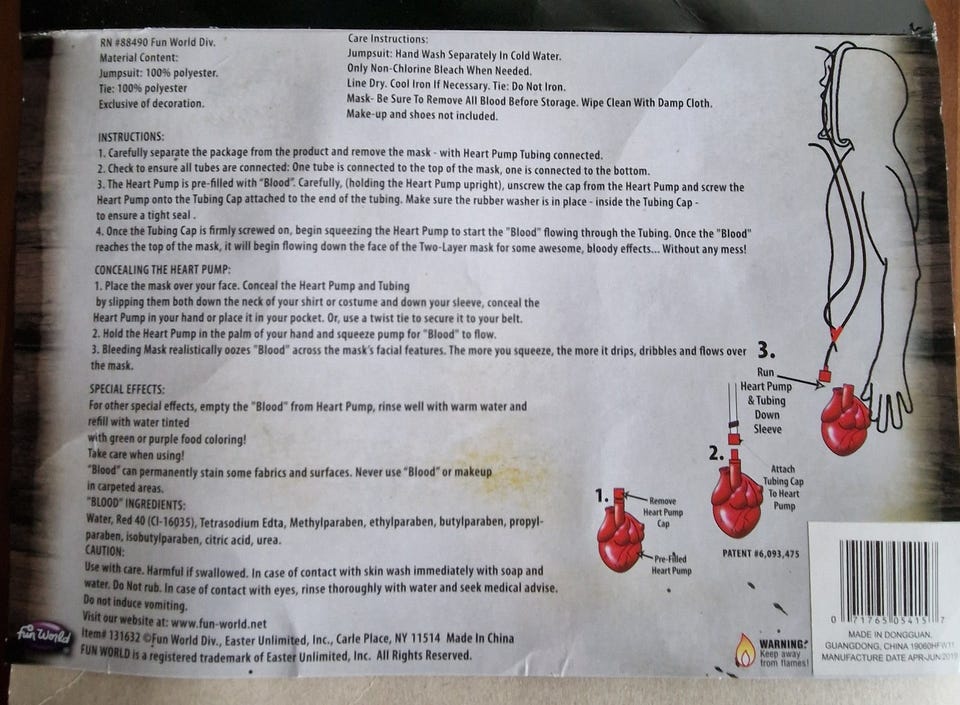 RN #88490 Fun World Div.
Material Content:
Jumpsuit: 100% polyester.
Tie: 100% polyester
Exclusive of decoration.
Care Instructions:
Jumpsuit: Hand Wash Separately In Cold Water.
Only Non-Chlorine Bleach When Needed.
Line Dry. Cool Iron If Necessary. Tie: Do Not Iron.
Mask- Be Sure To Remove All Blood Before Storage. Wipe Clean With Damp Cloth.
Make-up and shoes not included.
INSTRUCTIONS:
1. Carefully separate the package from the product and remove the mask - with Heart Pump Tubing connected.
2. Check to ensure all tubes are connected: One tube is connected to the top of the mask, one is connected to the bottom.
3. The Heart Pump is pre-filled with "Blood". Carefully, (holding the Heart Pump upright), unscrew the cap from the Heart Pump and screw the
Heart Pump onto the Tubing Cap attached to the end of the tubing. Make sure the rubber washer is in place - inside the Tubing Cap -
to ensure a tight seal .
4. Once the Tubing Cap is firmly screwed on, begin squeezing the Heart Pump to start the "Blood" flowing through the Tubing. Once the "Blood"
reaches the top of the mask, it will begin flowing down the face of the Two-Layer mask for some awesome, bloody effects... Without any mess!
CONCEALING THE HEART PUMP:
1. Place the mask over your face. Conceal the Heart Pump and Tubing
by slipping them both down the neck of your shirt or costume and down your sleeve, conceal the
Heart Pump in your hand or place it in your pocket. Or, use a twist tie to secure it to your belt.
2. Hold the Heart Pump in the palm of your hand and squeeze pump for "Blood" to flow.
3. Bleeding Mask realistically oozes "Blood" across the mask's facial features. The more you squeeze, the more it drips, dribbles and flows over
the mask.
SPECIAL EFFECTS:
For other special effects, empty the "Blood" from Heart Pump, rinse well with warm water and
refill with water tinted
with green or purple food coloring!
Take care when using!
"Blood" can permanently stain some fabrics and surfaces. Never use "Blood" or makeup
in carpeted areas.
"BLOOD" INGREDIENTS:
Water, Red 40 (CI-16035), Tetrasodium Edta, Methylparaben, ethylparaben, butylparaben, propyl-
paraben, isobutylparaben, citric acid, urea.
CAUTION:
Use with care. Harmful if swallowed. In case of contact with skin wash immediately with soap and
water. Do Not rub. In case of contact with eyes, rinse thoroughly with water and seek medical advise.
Do not induce vomiting.
Visit our website at: www.fun-world.net
Item# 131632 ©Fun World Div., Easter Unlimited, Inc., Carle Place, NY 11514 Made In China
FUN WORLD is a registered trademark of Easter Unlimited, Inc. All Rights Reserved.
fun World
1.
Remove
Heart Pump
Cap
Pre-Filled
Heart Pump
2.
Attach
Tubing Cap
To Heart
Pump
3.
Run
Heart Pump
& Tubing
Down
Sleeve
PATENT #6,093,475
WARNING:
Keep away
from flames!
0 71765 05415 7
MADE IN DONGGUAN,
GUANGDONG, CHINA 19060HFW11
MANUFACTURE DATE APR-JUN/2019